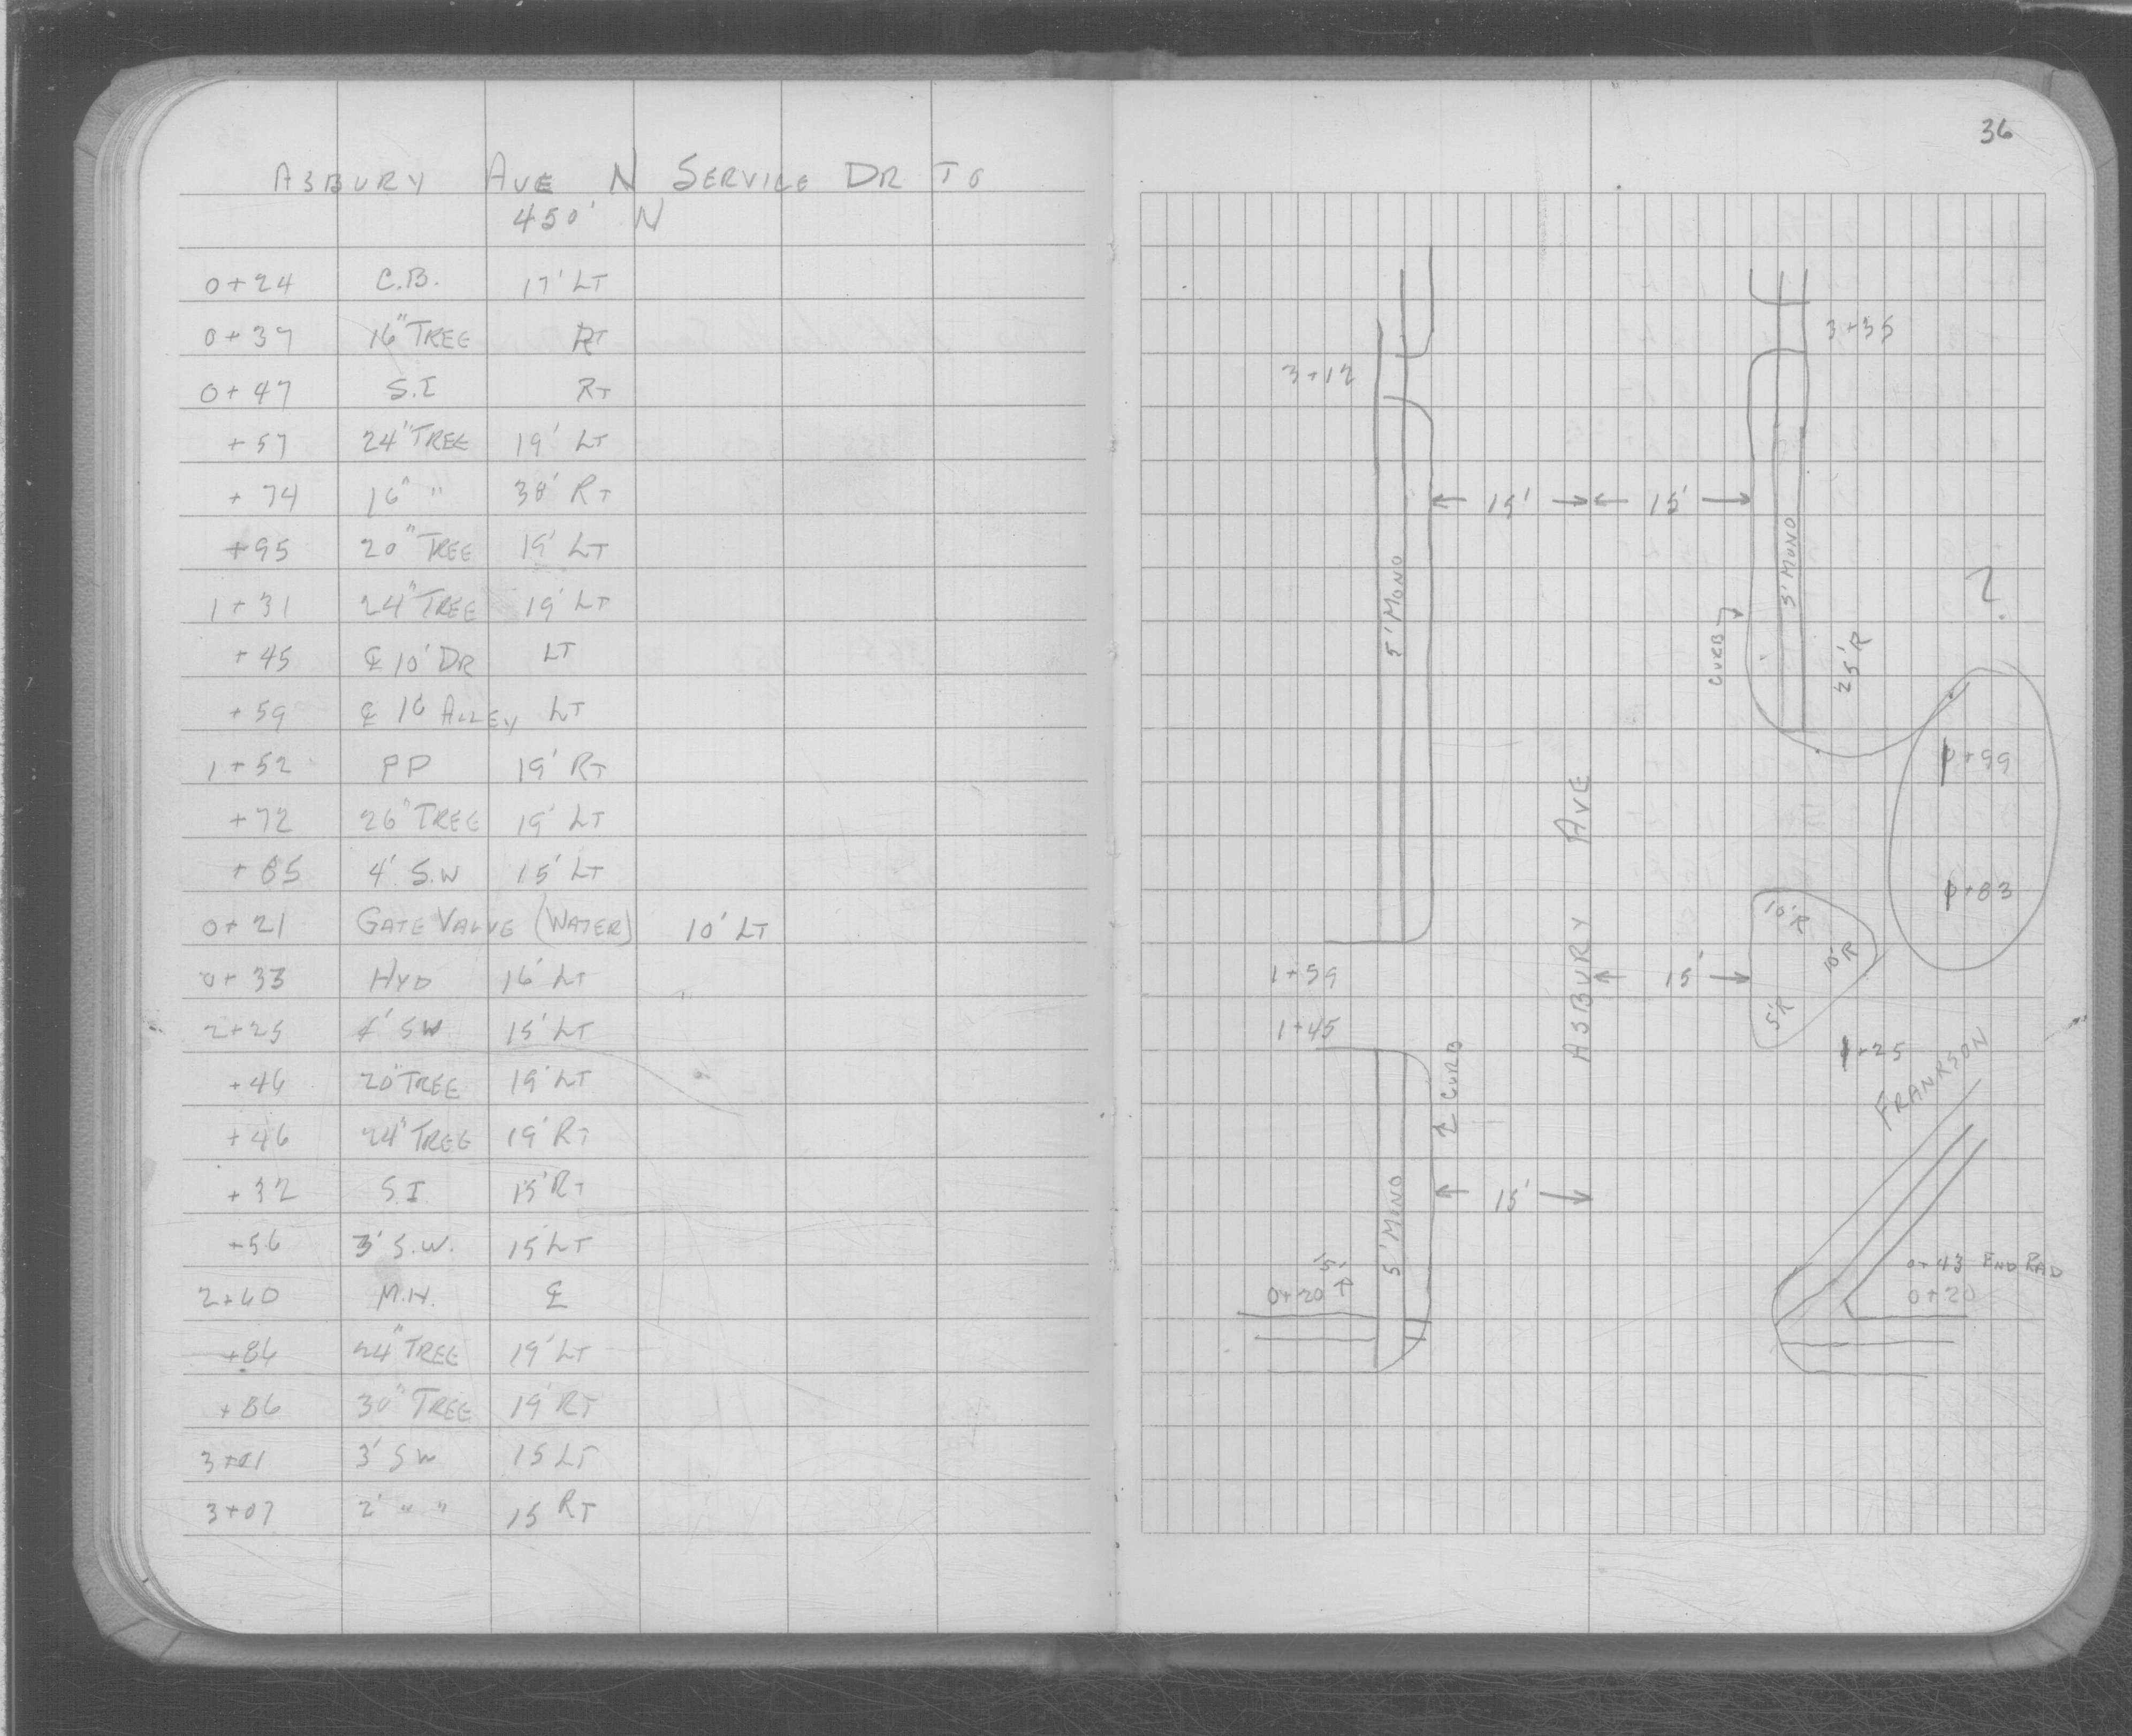 ASBURY AVE N SERVICE DR TO
450' N
0+24 C.B. 17' LT
0+37 16" TREE RT
0+47 S.I RT
+57 24" TREE 19' LT
+74 16" " 38' RT
+95 20" TREE 19' LT
1+31 24" TREE 19' LT
+45 ℄ 10' DR LT
+59 ℄ 16 ALLEY LT
1+52 PP 19' RT
+72 26" TREE 19' LT
+85 4' S.W 15' LT
0+21 GATE VALVE (WATER) 10' LT
0+33 HYD 16' LT
2+25 4' SW 15' LT
+46 20" TREE 19' LT
+46 24" TREE 19' RT
+32 S.I. 15' RT
+56 3' S.W. 15 LT
2+60 M.H. ℄
+86 24" TREE 19' LT
+86 30" TREE 19' RT
3+01 3' SW 15 LT
3+07 2' " " 15 RT
36
3+35
3+12
15' 15'
5' MONO
5' MONO
CURB
25' R
?
+99
+83
ASBURY AVE
10' R
10' R
5' R
15'
1+59
1+45
1+25
FRANKSON
CURB
15'
5' MONO
5'
R
0+20
0+43 END RAD
0+20